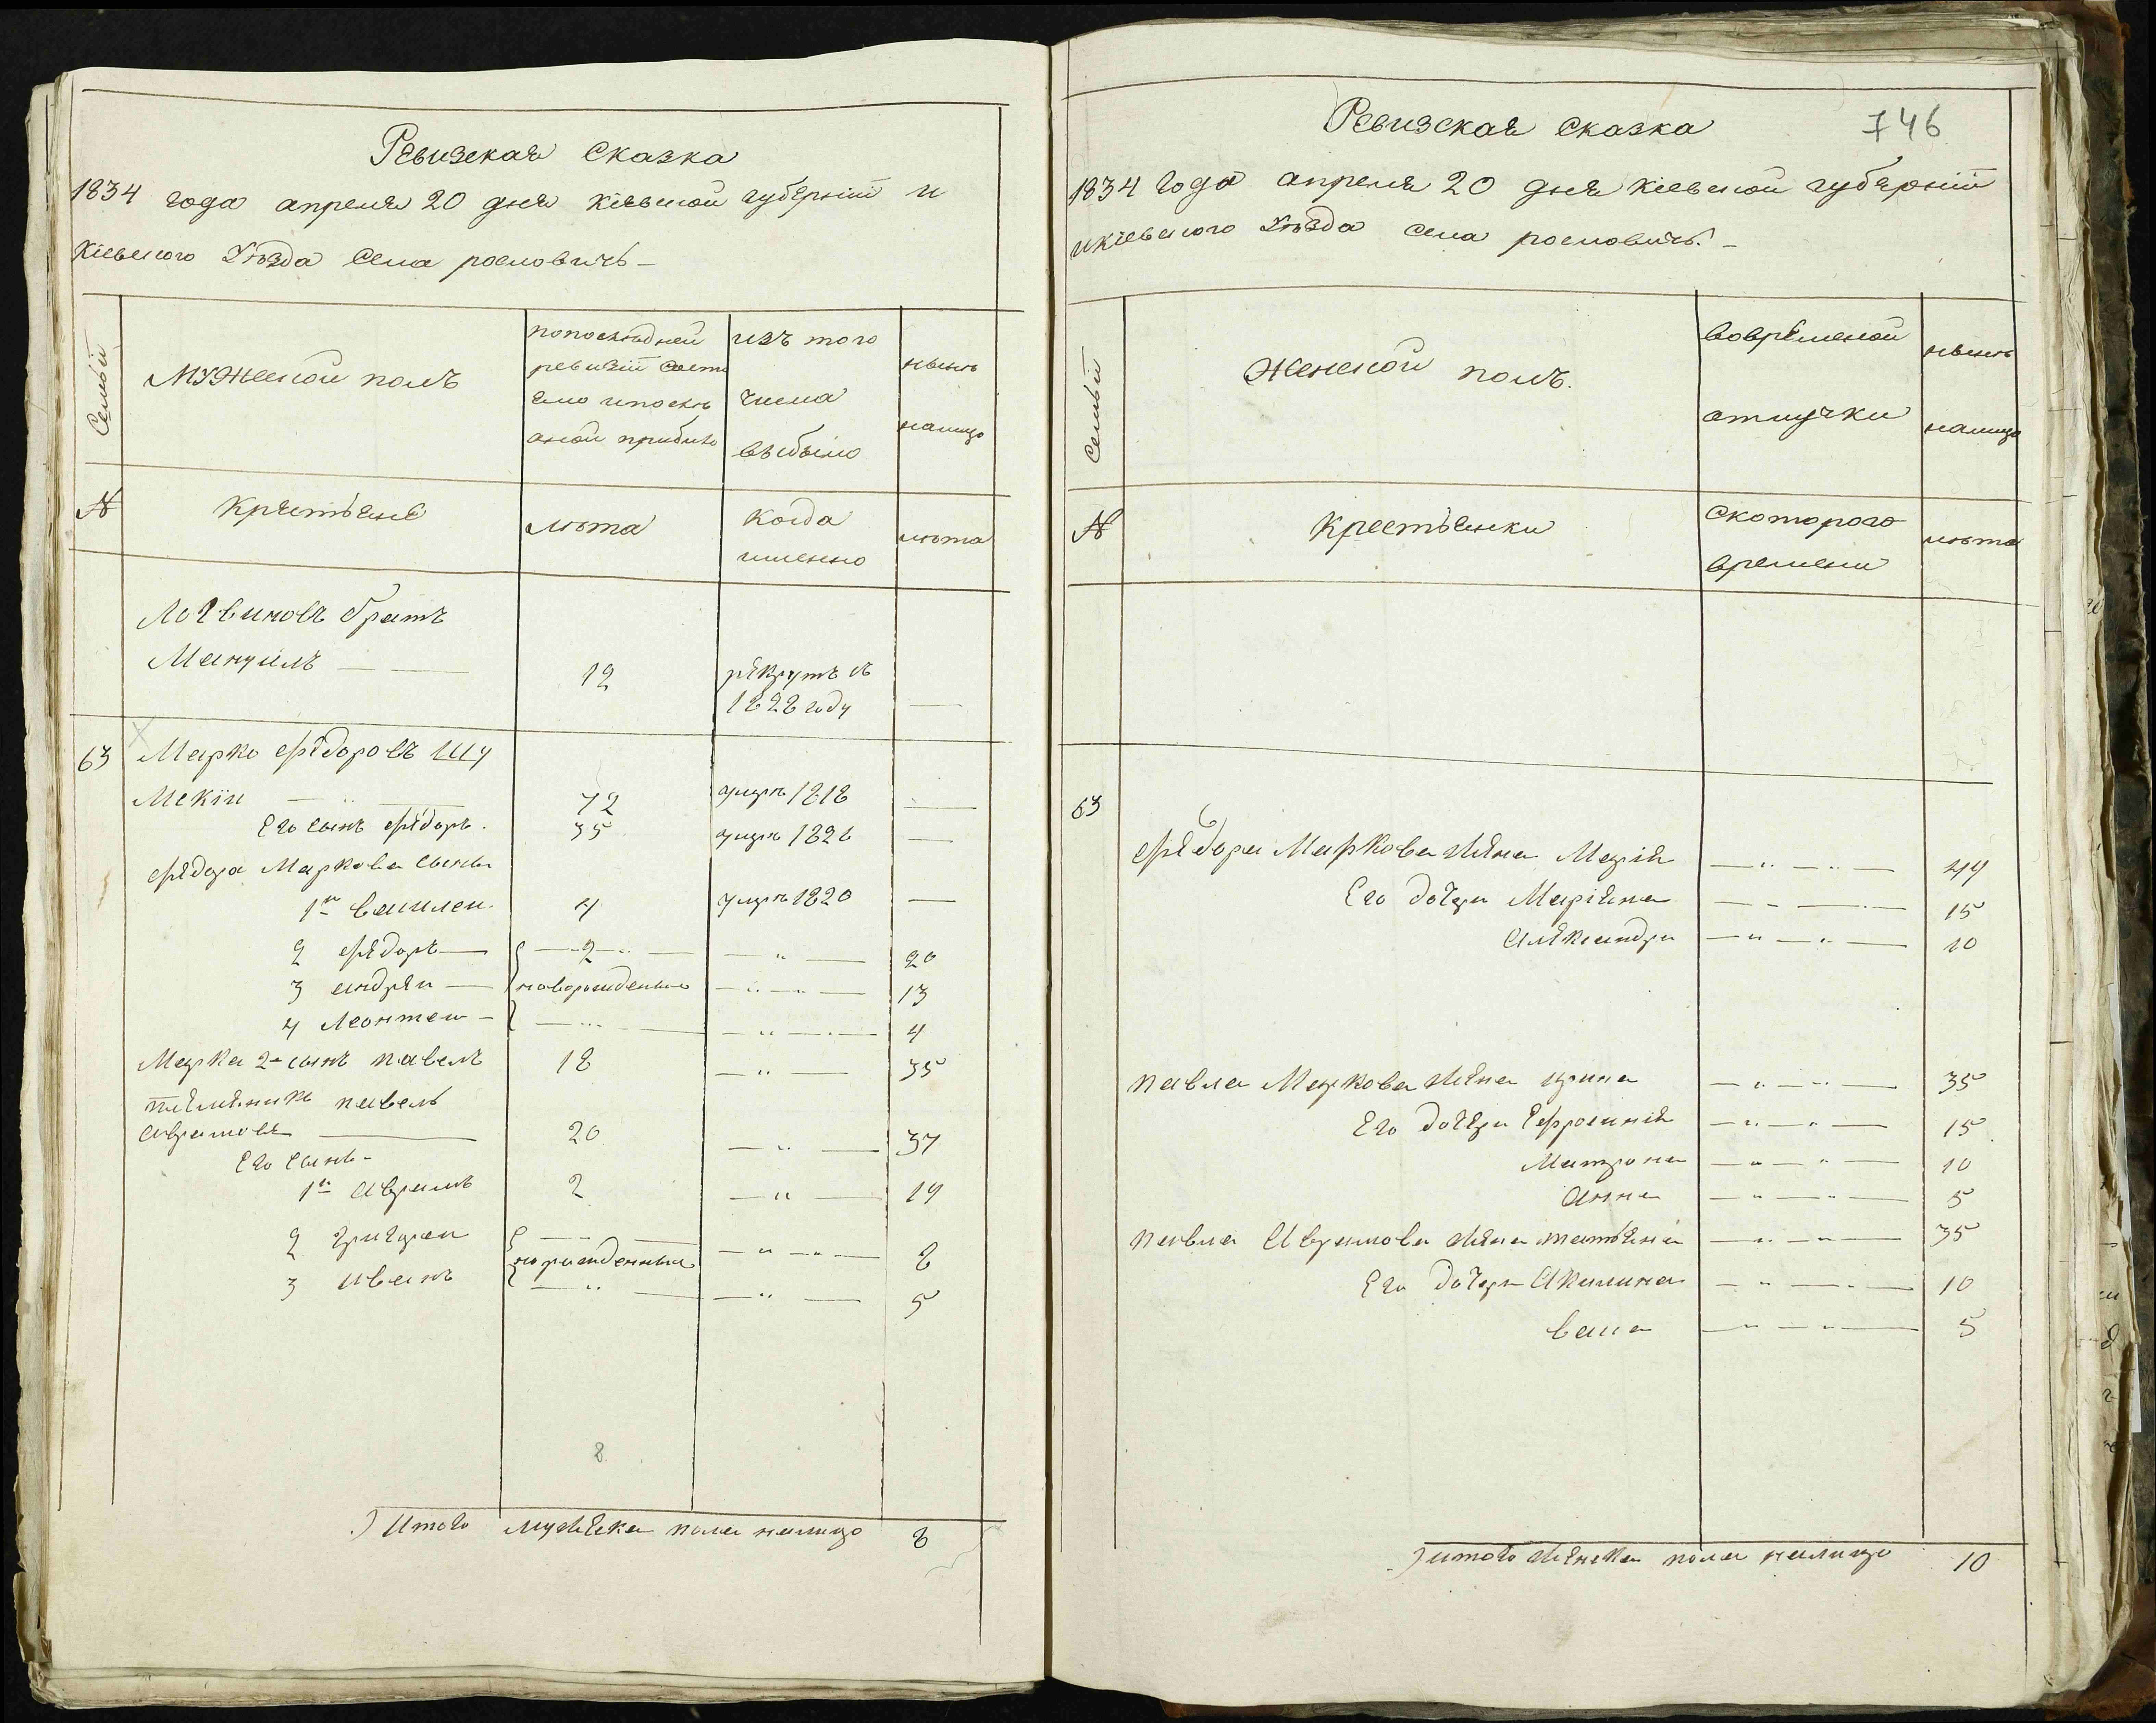 Ревизская Сказка
1834 года апреля 20 дня Кіевской губерніи и
Кіевского Уѣзда Села рославичь
Семьи
Мужеской полъ
попослѣдней
ревизіи состо
яло ипослѣ
оной прибыло
изъ того
числа
выбыло
нынѣ
налицо
№
Крестьяне
лѣта
Когда
именно
лѣта
Логвиновъ братъ
Мануилъ
12
рекрутъ въ
1828 году
63
Марко Федоровъ Шу
Мекіи
72
умре 1818
Его сынъ Федоръ
35
умре 1826
Федора Маркова сыны
1й Василеи
4
умре 1820
2 Федоръ
2
20
3 андреи
новорожденные
13
4 Леонтеи
4
Марка 2й сынъ павелъ
18
35
племеникъ павелъ
аврамовъ
20
37
Его сынъ
1й аврамъ
2
19
2 григореи
8
новорожденныя
3 иванъ
5
8
Итого мужеска пола налицо 8
Ревизская Сказка
746
1834 года апреля 20 дня Кіевской губерніи
иКіевского Уѣзда Села рославичь
Семьи
Женской полъ.
вовременой
отлучки
нынѣ
налицо
№
Крестьянки
Скоторого
времени
лѣта
63
Федора Маркова жена Марія 49
Его дочери Маріяна 15
Александра 10
павла Маркова жена ирина 35
Его дочери Ефросинія 15
Матрона 10
анна 5
павла Аврамова жена татіяна 35
Его дочери Акилина 10
Васа 5
итого женска пола налицо 10